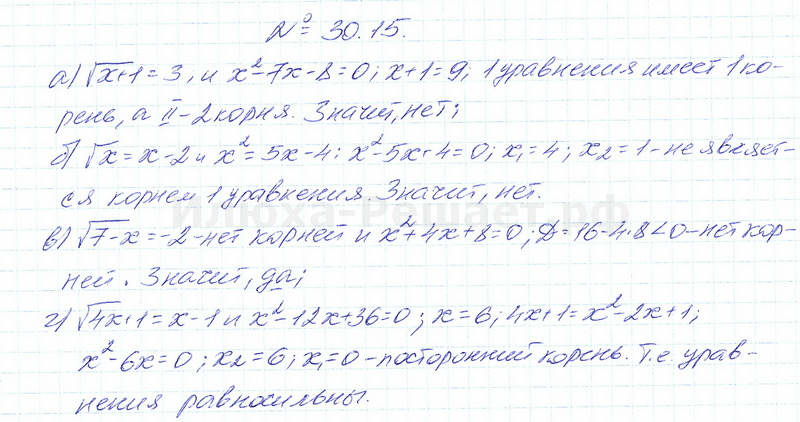 № 30.15.
а) √x+1 = 3, и x²-7x-8=0; x+1=9; 1 уравнения имеет 1 ко-
рень, а II - 2 корня. Значит, нет;
б) √x = x-2 и x² = 5x-4; x²-5x+4=0; x₁=4; x₂=1 - не являет-
ся корнем 1 уравнения. Значит, нет.
илюха-Решает.рф
в) √7-x = -2 - нет корней и x²+4x+8=0; D=16-4·8<0 - нет кор-
ней. Значит, да;
г) √4x+1 = x-1 и x²-12x+36=0; x=6; 4x+1=x²-2x+1;
x²-6x=0; x₂=6; x₁=0 - посторонний корень. Т.е. урав-
нения равносильны.